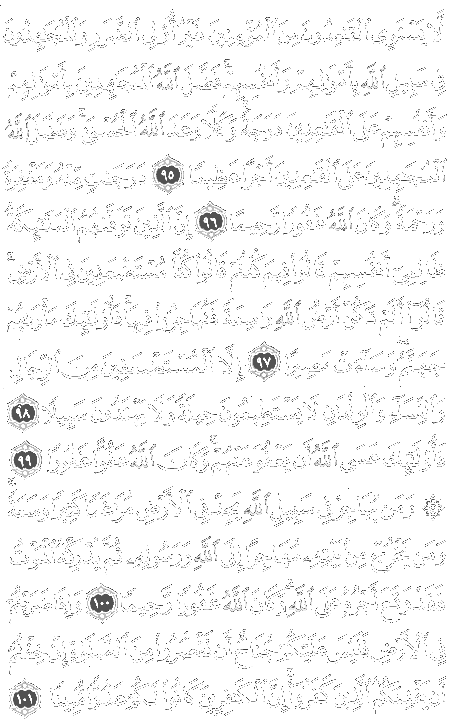 لَّا يَسْتَوِى ٱلْقَـٰعِدُونَ مِنَ ٱلْمُؤْمِنِينَ غَيْرُ أُو۟لِى ٱلضَّرَرِ وَٱلْمُجَـٰهِدُونَ
فِى سَبِيلِ ٱللَّهِ بِأَمْوَٰلِهِمْ وَأَنفُسِهِمْ ۚ فَضَّلَ ٱللَّهُ ٱلْمُجَـٰهِدِينَ بِأَمْوَٰلِهِمْ
وَأَنفُسِهِمْ عَلَى ٱلْقَـٰعِدِينَ دَرَجَةً ۚ وَكُلًّا وَعَدَ ٱللَّهُ ٱلْحُسْنَىٰ ۚ وَفَضَّلَ ٱللَّهُ
ٱلْمُجَـٰهِدِينَ عَلَى ٱلْقَـٰعِدِينَ أَجْرًا عَظِيمًا ٩٥ دَرَجَـٰتٍ مِّنْهُ وَمَغْفِرَةً
وَرَحْمَةً ۚ وَكَانَ ٱللَّهُ غَفُورًا رَّحِيمًا ٩٦ إِنَّ ٱلَّذِينَ تَوَفَّىٰهُمُ ٱلْمَلَـٰٓئِكَةُ
ظَالِمِىٓ أَنفُسِهِمْ قَالُوا۟ فِيمَ كُنتُمْ ۖ قَالُوا۟ كُنَّا مُسْتَضْعَفِينَ فِى ٱلْأَرْضِ ۚ
قَالُوٓا۟ أَلَمْ تَكُنْ أَرْضُ ٱللَّهِ وَٰسِعَةً فَتُهَاجِرُوا۟ فِيهَا ۚ فَأُو۟لَـٰٓئِكَ مَأْوَىٰهُمْ
جَهَنَّمُ ۖ وَسَآءَتْ مَصِيرًا ٩٧ إِلَّا ٱلْمُسْتَضْعَفِينَ مِنَ ٱلرِّجَالِ
وَٱلنِّسَآءِ وَٱلْوِلْدَٰنِ لَا يَسْتَطِيعُونَ حِيلَةً وَلَا يَهْتَدُونَ سَبِيلًا ٩٨
فَأُو۟لَـٰٓئِكَ عَسَى ٱللَّهُ أَن يَعْفُوَ عَنْهُمْ ۚ وَكَانَ ٱللَّهُ عَفُوًّا غَفُورًا ٩٩
۞ وَمَن يُهَاجِرْ فِى سَبِيلِ ٱللَّهِ يَجِدْ فِى ٱلْأَرْضِ مُرَٰغَمًا كَثِيرًا وَسَعَةً ۚ
وَمَن يَخْرُجْ مِنۢ بَيْتِهِۦ مُهَاجِرًا إِلَى ٱللَّهِ وَرَسُولِهِۦ ثُمَّ يُدْرِكْهُ ٱلْمَوْتُ
فَقَدْ وَقَعَ أَجْرُهُۥ عَلَى ٱللَّهِ ۗ وَكَانَ ٱللَّهُ غَفُورًا رَّحِيمًا ١٠٠ وَإِذَا ضَرَبْتُمْ
فِى ٱلْأَرْضِ فَلَيْسَ عَلَيْكُمْ جُنَاحٌ أَن تَقْصُرُوا۟ مِنَ ٱلصَّلَوٰةِ إِنْ خِفْتُمْ
أَن يَفْتِنَكُمُ ٱلَّذِينَ كَفَرُوٓا۟ ۚ إِنَّ ٱلْكَـٰفِرِينَ كَانُوا۟ لَكُمْ عَدُوًّا مُّبِينًا ١٠١